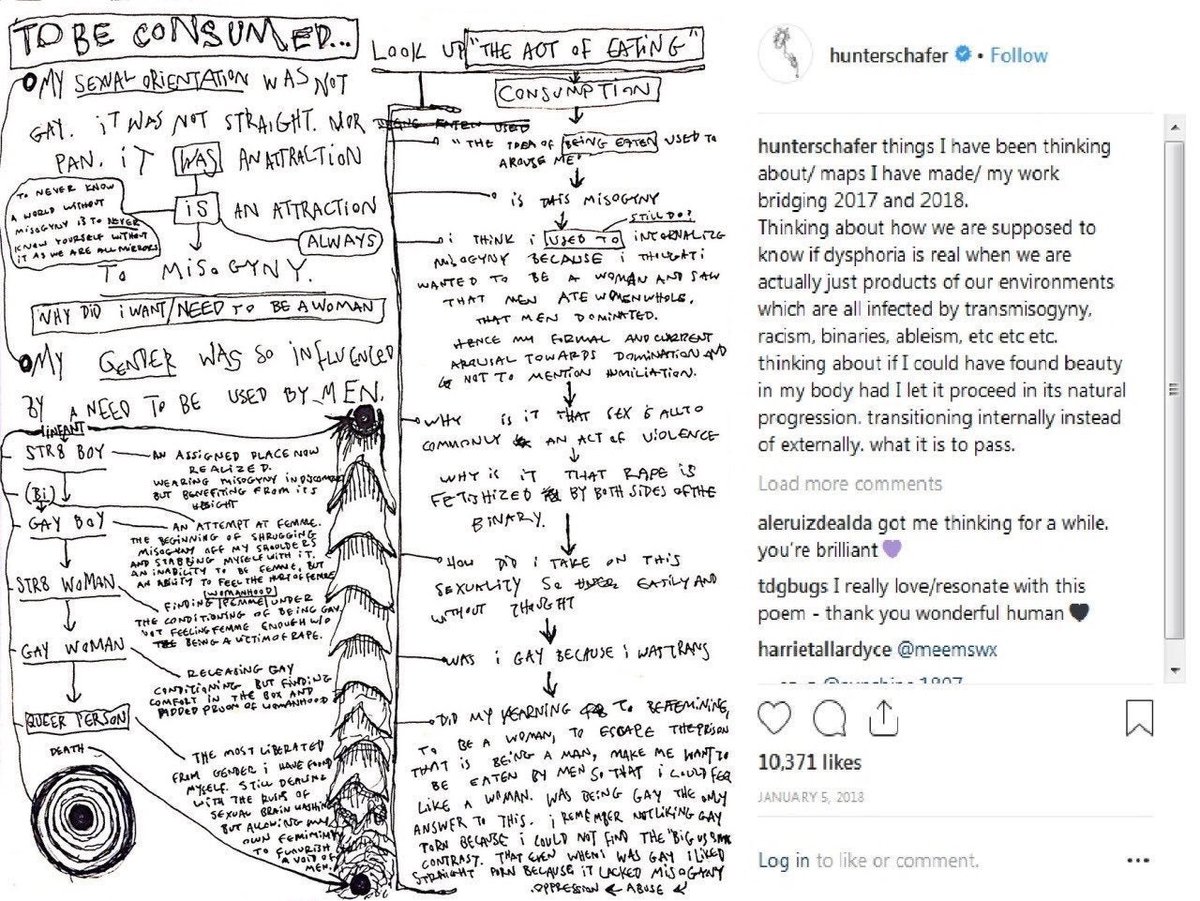 TO BE CONSUMED...
MY SEXUAL ORIENTATION WAS NOT
GAY. iT WAS NOT STRAIGHT. NOR
PAN. iT WAS AN ATTRACTION
TO NEVER KNOW
A WORLD WITHOUT
MISOGYNY IS TO NEVER
KNOW YOURSELF WITHOUT
IT AS WE ARE ALL MIRRORS
IS AN ATTRACTION
ALWAYS
TO MISOGYNY.
WHY DID i WANT/NEED TO BE A WOMAN
MY GENDER WAS SO INFLUENCED
BY A NEED TO BE USED BY MEN.
INFANT
STR8 BOY
AN ASSIGNED PLACE NOW
REALIZED.
WEARING MISOGYNY IN DISCOMFORT
BUT BENEFITING FROM ITS
WEIGHT
(Bi)
GAY BOY
AN ATTEMPT AT FEMME.
THE BEGINNING OF SHRUGGING
MISOGYNY OFF MY SHOULDERS
AND STABBING MYSELF WITH iT.
AN INABILITY TO BE FEMME, BUT
AN ABILITY TO FEEL THE HURT OF FEMME
STR8 WOMAN
WOMANHOOD
FINDING FEMME UNDER
THE CONDITIONING OF BEING GAY.
NOT FEELING FEMME ENOUGH W/O
BEING A VICTIM OF RAPE.
GAY WOMAN
RELEASING GAY
CONDITIONING BUT FINDING
COMFORT IN THE BOX AND
PADDED PRISON OF WOMANHOOD
QUEER PERSON
THE MOST LIBERATED
FROM GENDER i HAVE FOUND
MYSELF. STILL DEALING
WITH THE RUINS OF
SEXUAL BRAIN WASHING
BUT ALLOWING MY
OWN FEMININITY
TO FLOURISH IN
A VOID OF
MEN.
DEATH
LOOK UP "THE ACT OF EATING"
CONSUMPTION
BEING EATEN USED
"THE IDEA OF BEING EATEN USED TO
AROUSE ME"
is THIS MISOGYNY
STILL DO?
i THINK i USED TO INTERNALIZE
MISOGYNY BECAUSE i THOUGHT i
WANTED TO BE A WOMAN AND SAW
THAT MEN ATE WOMEN WHOLE.
THAT MEN DOMINATED.
HENCE MY FORMAL AND CURRENT
AROUSAL TOWARDS DOMINATION AND
NOT TO MENTION HUMILIATION.
WHY IS iT THAT SEX iS ALL TO
COMMONLY AN ACT OF VIOLENCE
WHY IS iT THAT RAPE iS
FETISHIZED BY BOTH SIDES OF THE
BINARY.
HOW DID i TAKE ON THIS
SEXUALITY SO EATILY AND
WITHOUT THOUGHT
WAS i GAY BECAUSE i WAS TRANS
DID MY YEARNING TO BE FEMININE,
TO BE A WOMAN, TO ESCAPE THE PRISON
THAT IS BEING A MAN, MAKE ME WANT TO
BE EATEN BY MEN SO THAT i COULD FEEL
LIKE A WOMAN. WAS BEING GAY THE ONLY
ANSWER TO THIS. i REMEMBER NOT LIKING GAY
PORN BECAUSE i COULD NOT FIND THE "BIG VS SMALL
CONTRAST. THAT EVEN WHEN i WAS GAY i LIKED
STRAIGHT PORN BECAUSE IT LACKED MISOGYNY
OPPRESSION ← ABUSE
hunterschafer • Follow
hunterschafer things I have been thinking
about/ maps I have made/ my work
bridging 2017 and 2018.
Thinking about how we are supposed to
know if dysphoria is real when we are
actually just products of our environments
which are all infected by transmisogyny,
racism, binaries, ableism, etc etc etc.
thinking about if I could have found beauty
in my body had I let it proceed in its natural
progression. transitioning internally instead
of externally. what it is to pass.
Load more comments
aleruizdealda got me thinking for a while.
you're brilliant 💜
tdgbugs I really love/resonate with this
poem - thank you wonderful human 🖤
harrietallardyce @meemswx
10,371 likes
JANUARY 5, 2018
Log in to like or comment.